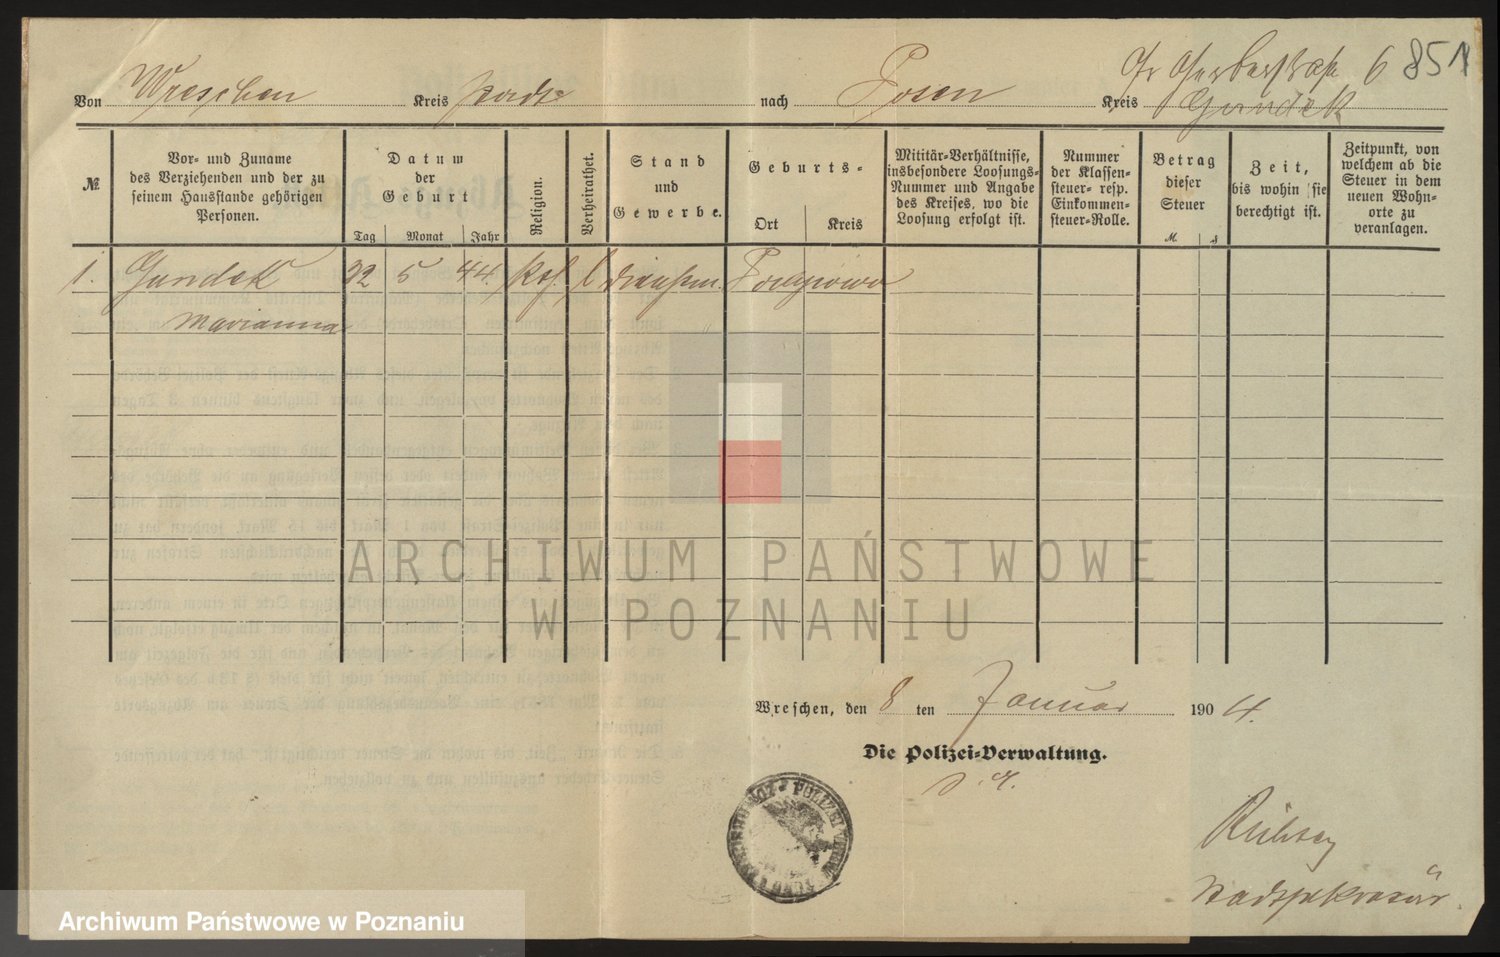 Gr Gerberstraße 6 851
Von Wreschen Kreis Stadt nach Posen Kreis Gondek
№
Vor- und Zuname
des Verziehenden und der zu
seinem Hausstande gehörigen
Personen.
Datum
der
Geburt
Tag Monat Jahr
Religion.
Verheirathet.
Stand
und
Gewerbe.
Geburts-
Ort Kreis
Mititär-Verhältnisse,
insbesondere Loosungs-
Nummer und Angabe
des Kreises, wo die
Loosung erfolgt ist.
Nummer
der Klassen-
steuer- resp.
Einkommen-
steuer-Rolle.
Betrag
dieser
Steuer
M. ₰
Zeit,
bis wohin sie
berechtigt ist.
Zeitpunkt, von
welchem ab die
Steuer in dem
neuen Wohn-
orte zu
veranlagen.
1. Gondek 22 5 44. kath. l
Marianna
Wreschen, den 8 ten Januar 1904.
Die Polizei-Verwaltung.
Stadtsekretär.
POLIZEI
ARCHIWUM PAŃSTWOWE
W POZNANIU
Archiwum Państwowe w Poznaniu